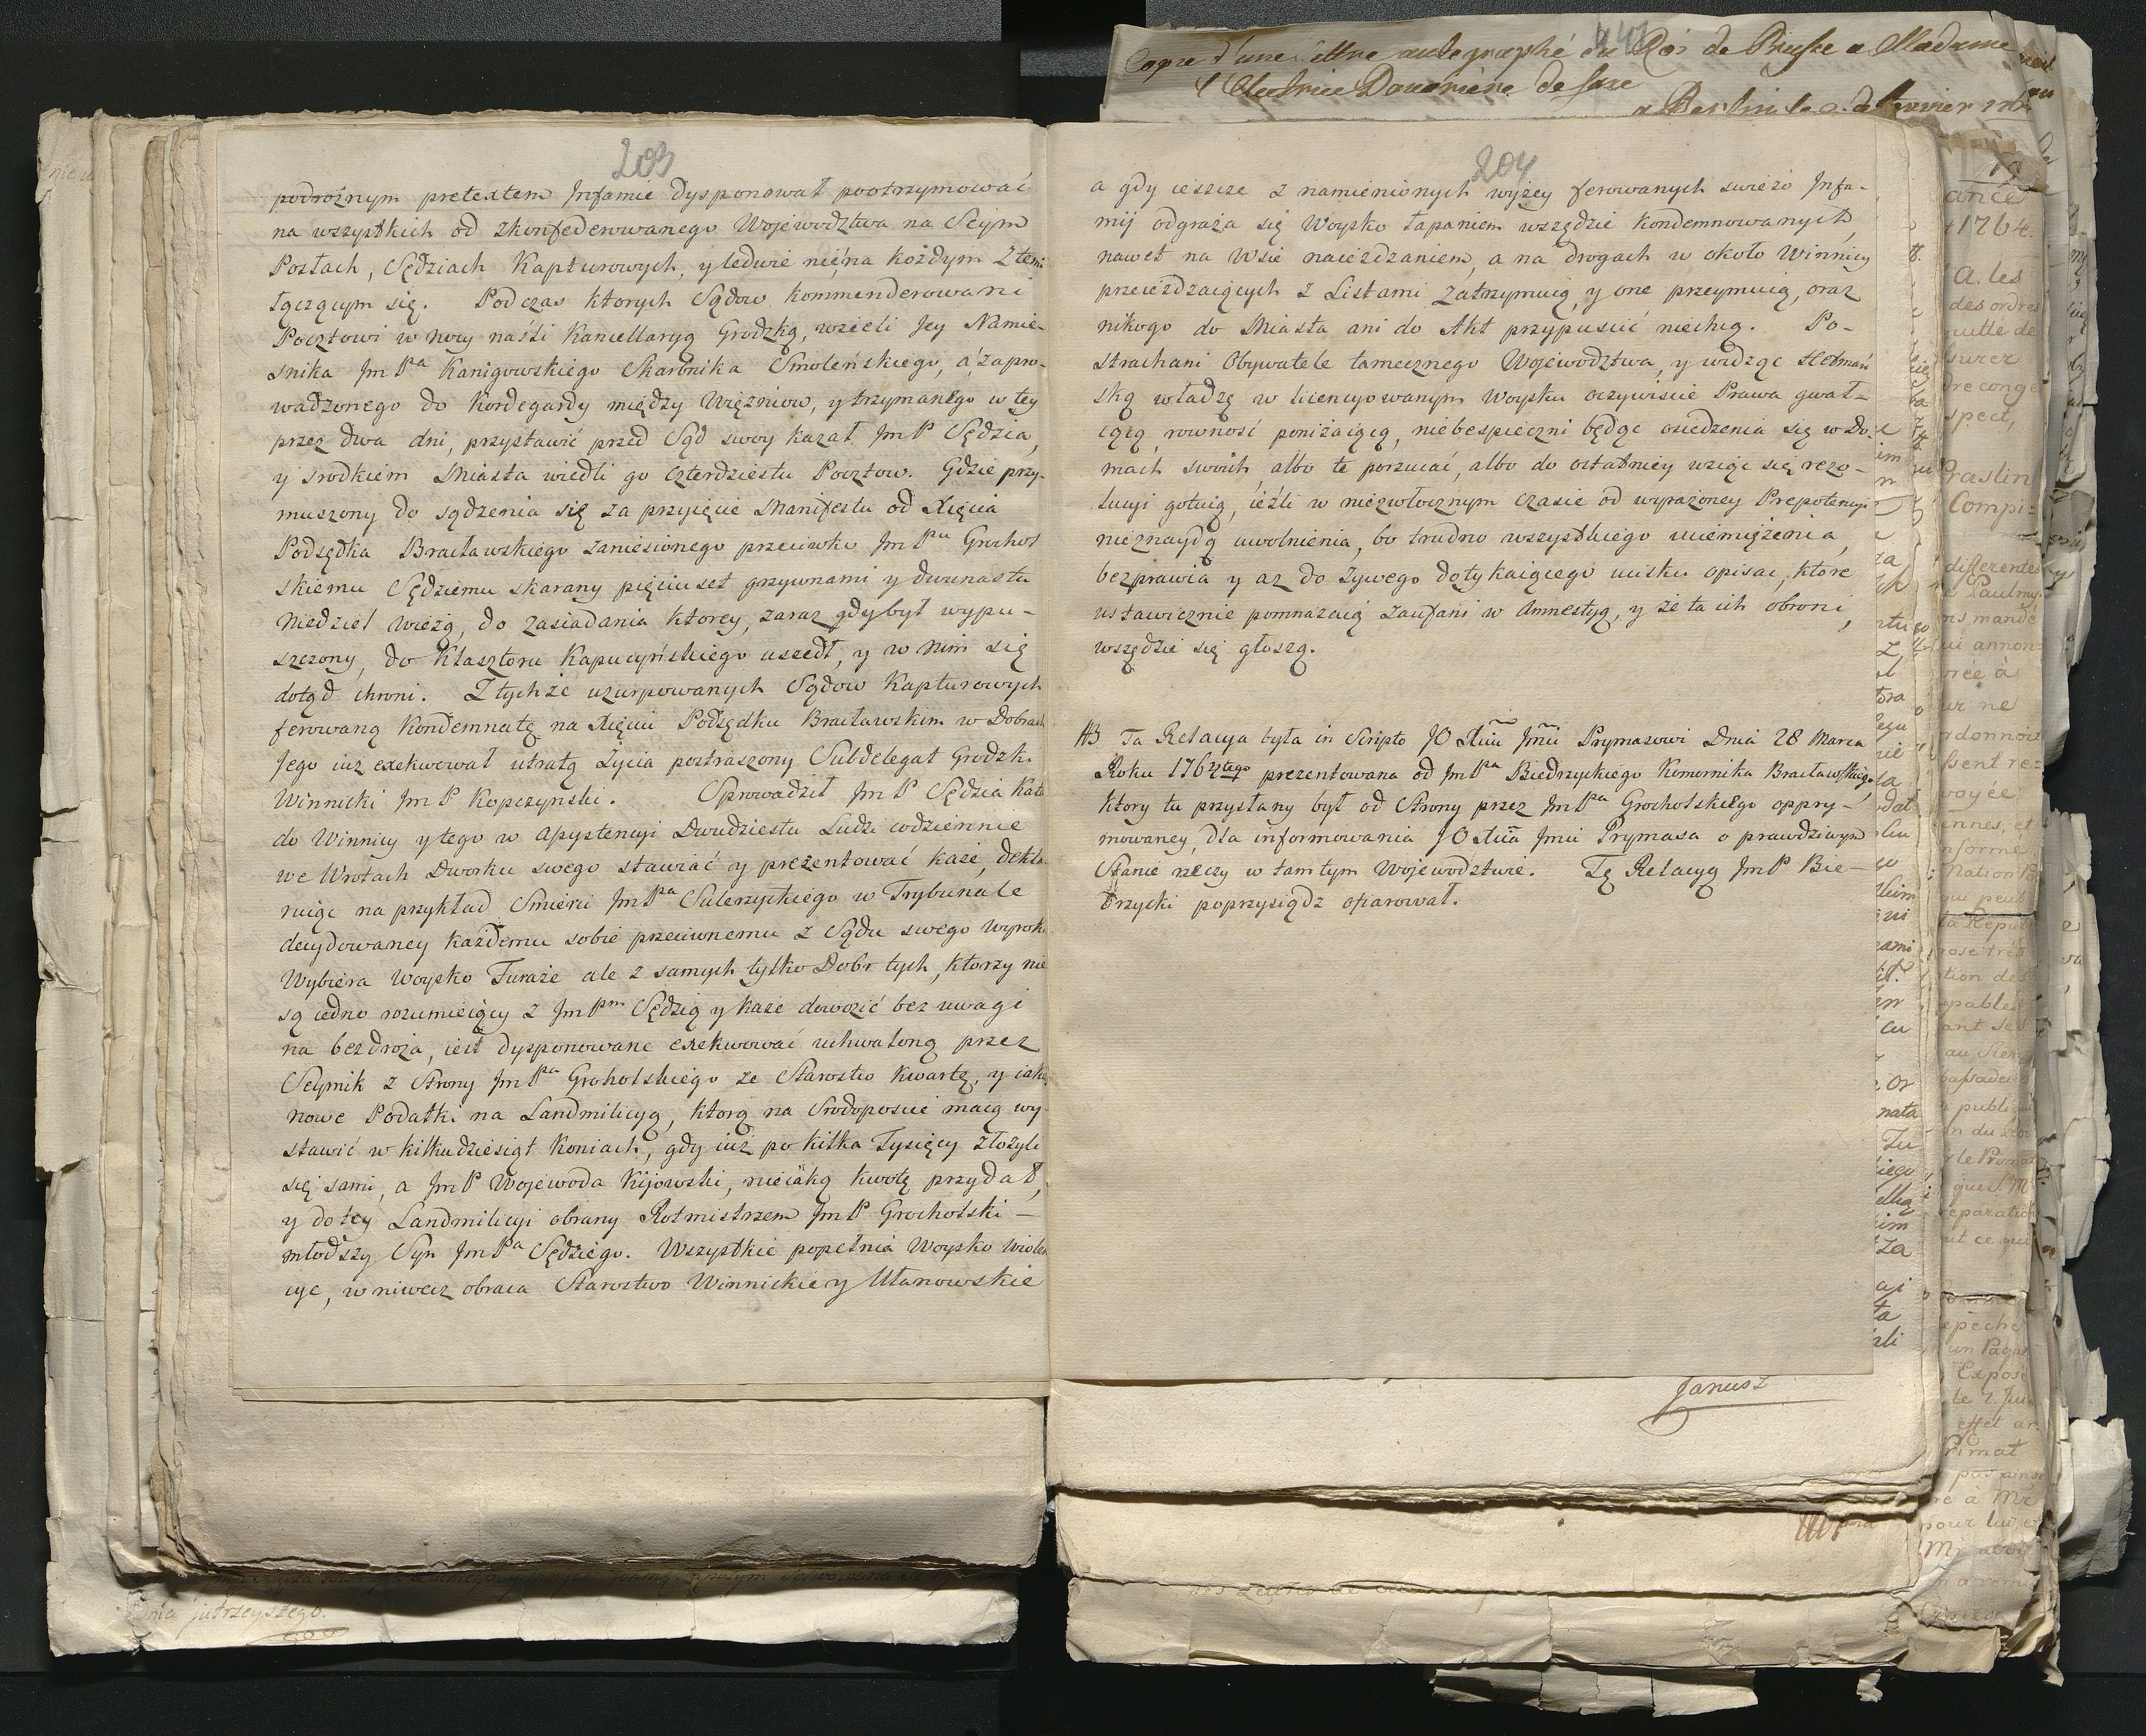 203
podrożnym pretextem Infamie dysponował pootrzymować
na wszystkich od Zkonfederowanego Woiewodztwa na Seym
Posłach, Sędziach Kapturowych, y ledwie nie na każdym Z tem
łączącym się. Podczas ktorych Sądow kommenderowani
Pocztowi w nocy naszli Kancellaryą Grodzką, wzieli Jey Namie-
snika Jm Pa Kanigowskiego Skarbnika Smoleńskiego, a zapro-
wadzonego do Kordegardy między Więzniow, y trzymanego w tey
przez dwa dni, przystawić przed Sąd swoy kazał Jm P Sędzia,
y srodkiem Miasta wiedli go czterdziestu Pocztow. Gdzie przy-
muszony do sądzenia się za przyięcie Manifestu od Xięcia
Podsędka Bracławskiego zaniesionego przeciwko Jm Pu Grochol
skiemu Sędziemu skarany pięciuset grzywnami y dwunastu
Niedziel wieżą, do zasiadania ktorey, zaraz gdy był wypu-
szczony, do Klasztoru Kapucyńskiego uszedł, y w nim się
dotąd chroni. Z tychże uzurpowanych Sądow Kapturowych
ferowaną Kondemnatę na Xięciu Podsędku Bracławskim w Dobrach
Jego iuż exekwował utratą Życia postraszony Subdelegat Grodzk.
Winnicki Jm P Kopczynski. Sprowadził Jm P Sędzia Kata
do Winnicy y tego w Assystencyi Dwudziestu Ludzi codziennie
we Wrotach Dworku swego stawiać y prezentować każe, dekla
ruiąc na przykład Smierci Jm Pa Sulerzyckiego w Trybunale
decydowaney każdemu sobie przeciwnemu z Sądu swego wyrok.
Wybiera Woysko Furaże ale z samych tylko Dobr tych, ktorzy nie
są iedno rozumieiący z Jm Pm Sędzią y każe dowozić bez uwagi
na bezdroża, iest dysponowane exekwować uchwaloną przez
Seymik z Strony Jm Pa Grocholskiego ze Starostw Kwartę, y iakieś
nowe Podatki na Landmilicyą, ktorą na Srodoposciu maią wy-
stawić w kilkudziesiąt Koniach, gdy iuż po kilka Tysięcy złożyli
się sami, a Jm P Wojewoda Kijowski, nieiaką kwotę przydał,
y do tey Landmilicyi obrany Rotmistrzem Jm P Grocholski –
młodszy Syn Jm Pa Sędziego. Wszystkie popełnia Woysko wiolen
cye, w niwecz obraca Starostwo Winnickie y Ułanowskie
204
a gdy ieszcze z namienionych wyżey ferowanych swieżo Infa-
mij odgraża się Woysko łapaniem wszędzie Kondemnowanych,
nawet na Wsie naieżdzaniem, a na drogach w około Winnicy
przeieżdzaiących z Listami zatrzymuią, y one przeymuią, oraz
nikogo do Miasta ani do Akt przypuscić niechcą. Po-
strachani Obywatele tamecznego Woiewodztwa, y widząc Hetmań
ską władzę w licencyowanym Woysku oczywiscie Prawa gwał-
cącą, rownosć poniżaiącą, niebespieczni będąc osiedzenia się w Do-
mach swoich, albo te porzucać, albo do ostatniey wziąc się rezo-
lucyi gotuią, ieżli w niezwłocznym czasie od wyrażoney Prepotencyi
nieznaydą uwolnienia, bo trudno wszystkiego uciemiężenia,
bezprawia y aż do żywego dotykaiącego ucisku opisać, ktore
ustawicznie pomnażaią zaufani w Amnestyą, y że ta ich obroni,
wszędzie się głoszą.
NB Ta Relacya była in Scripto JO Xciu Jmci Prymasowi Dnia 28 Marca
Roku 1764tego prezentowana od Jm Pa Biedrzyckiego Komornika Bracławskiego,
ktory tu przysłany był od Strony przez Jm Pa Grocholskiego oppry-
mowaney, dla informowania JO Xcia Jmci Prymasa o prawdziwym
Stanie rzeczy w tamtym Woiewodztwie. Tę Relacyą Jm P Bie-
drzycki poprzysiądz ofiarował.
Janusz
Copie d'une lettre autographé du Roi de Prusse a Madame
l'Electrice Douariere de Saxe
a Berlin le
jutrzeyszego.
ance
1764.
a. les
des ordres
spect,
Praslin
Compi-
differentes
Paulmy